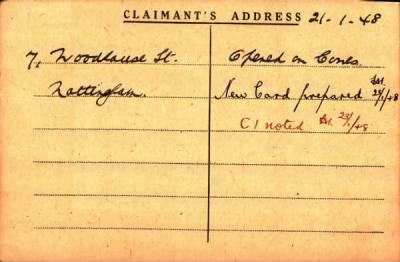 CLAIMANT'S ADDRESS 21-1-48
7, Woodhouse St.
Nottingham.
Opened on
New Card prepared 28/1/48
C1 noted 28/1/48